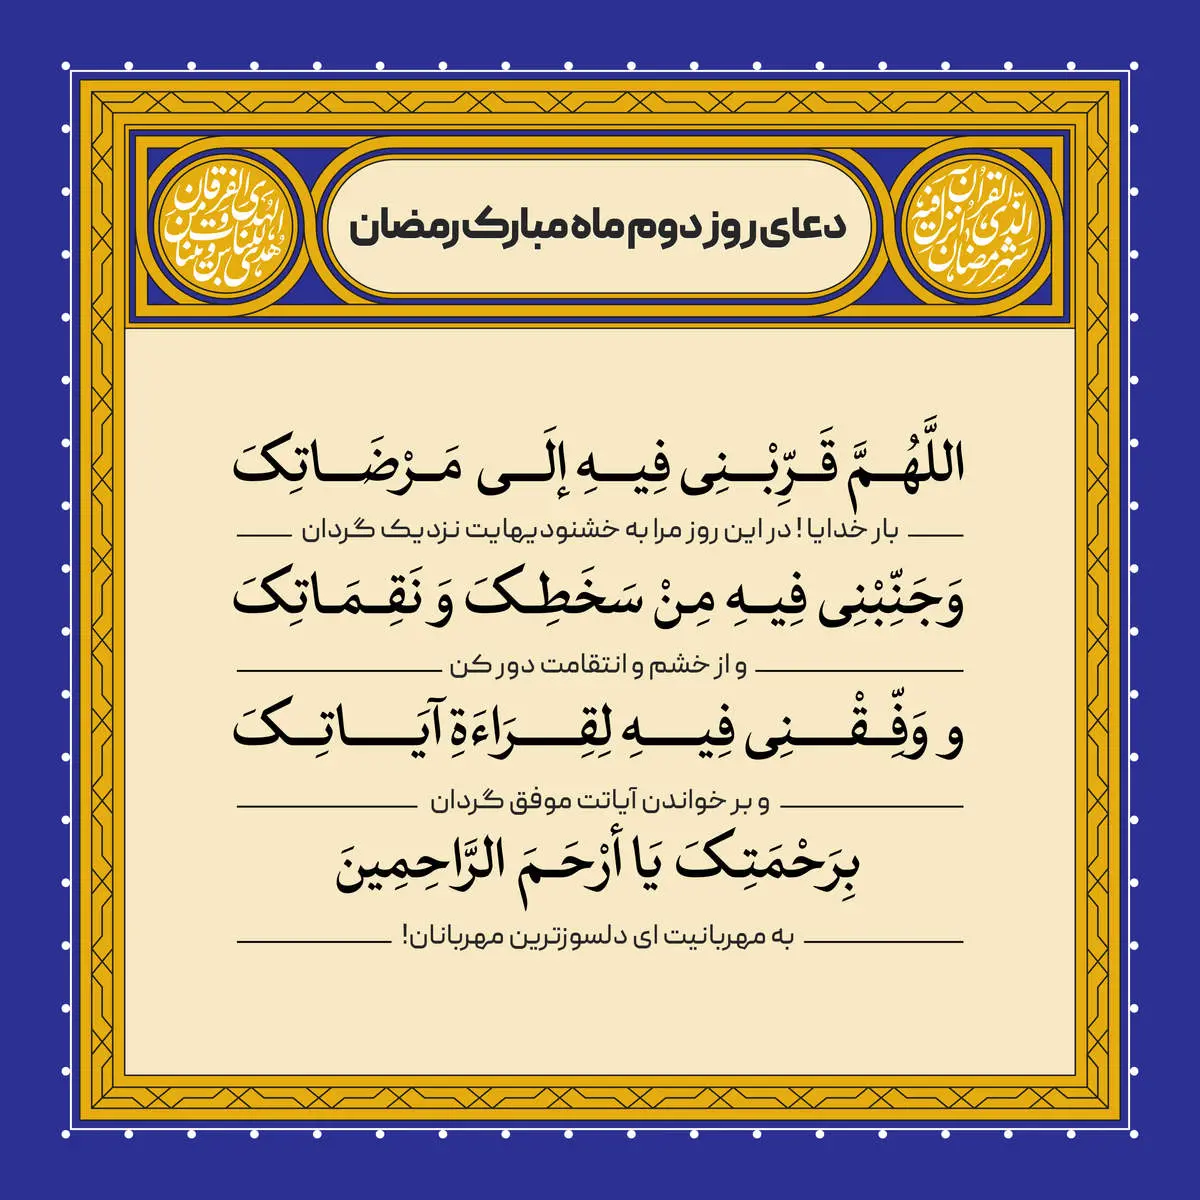 دعای روز دوم ماه مبارک رمضان
شهر رمضان الذی انزل فیه القرآن
هدی للناس و بینات من الهدی و الفرقان
اللَّهُمَّ قَرِّبْنِی فِیهِ إِلَی مَرْضَاتِکَ
بار خدایا ! در این روز مرا به خشنودیهایت نزدیک گردان
وَجَنِّبْنِی فِیهِ مِنْ سَخَطِکَ وَ نَقِمَاتِکَ
و از خشم و انتقامت دور کن
و وَفِّقْنِی فِیهِ لِقِرَاءَةِ آیَاتِکَ
و بر خواندن آیاتت موفق گردان
بِرَحْمَتِکَ یَا أَرْحَمَ الرَّاحِمِینَ
به مهربانیت ای دلسوزترین مهربانان!